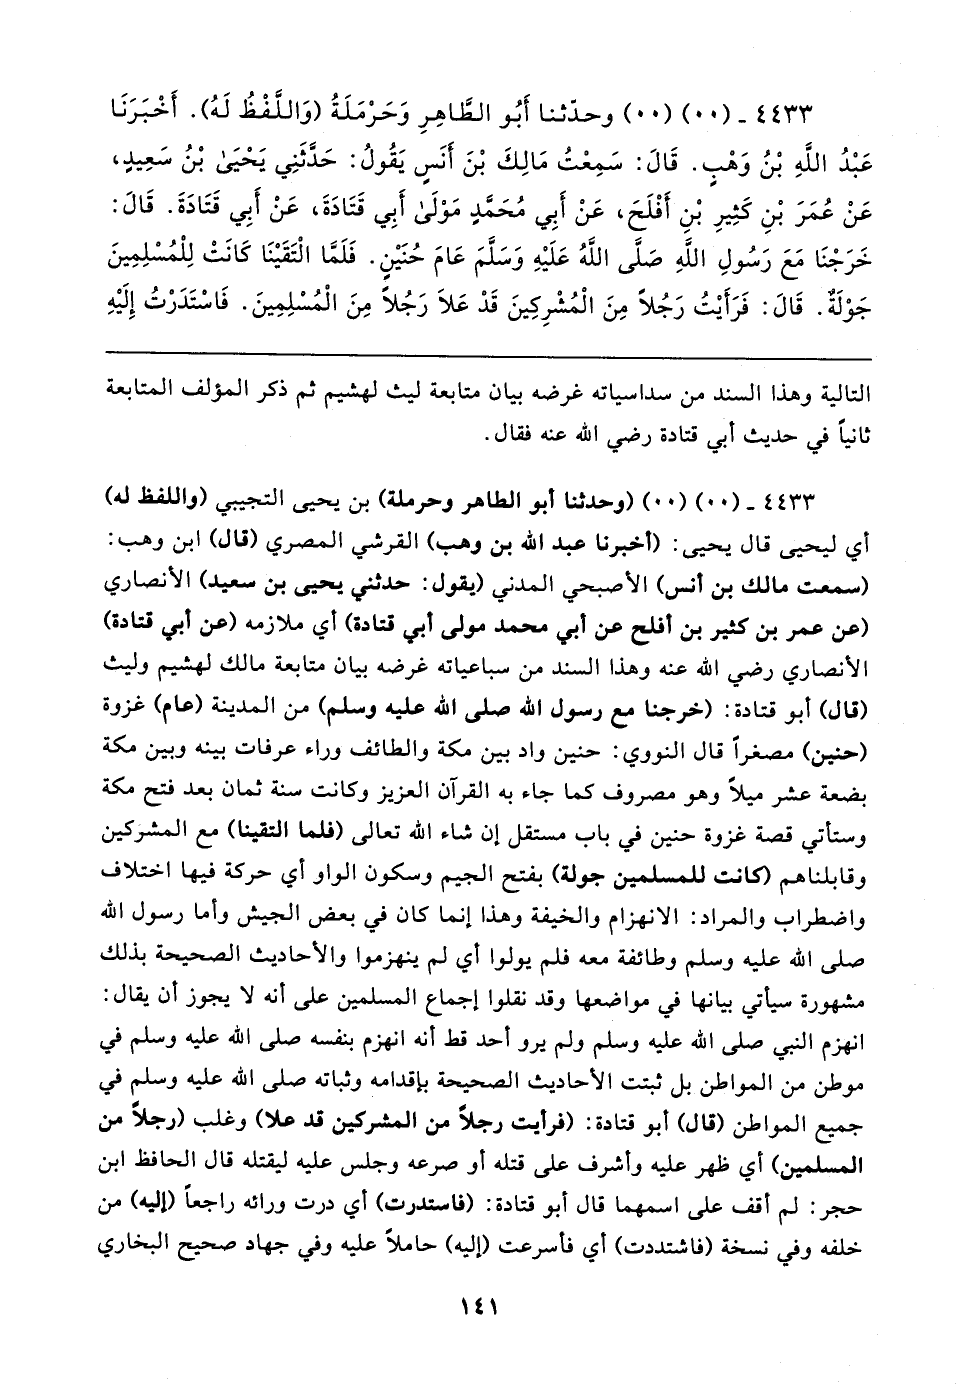 ٤٤٣٣ ـ (٠٠) (٠٠) وحدّثنا أَبُو الطَّاهِرِ وَحَرْمَلَةُ (وَاللَّفْظُ لَهُ). أَخْبَرَنَا
عَبْدُ اللَّهِ بْنُ وَهْبٍ. قَالَ: سَمِعْتُ مَالِكَ بْنَ أَنَسٍ يَقُولُ: حَدَّثَنِي يَحْيَىٰ بْنُ سَعِيدٍ،
عَنْ عُمَرَ بْنِ كَثِيرِ بْنِ أَفْلَحَ، عَنْ أَبِي مُحَمَّدٍ مَوْلَىٰ أَبِي قَتَادَةَ، عَنْ أَبِي قَتَادَةَ. قَالَ:
خَرَجْنَا مَعَ رَسُولِ اللَّهِ صَلَّى اللَّهُ عَلَيْهِ وَسَلَّمَ عَامَ حُنَيْنٍ. فَلَمَّا الْتَقَيْنَا كَانَتْ لِلْمُسْلِمِينَ
جَوْلَةٌ. قَالَ: فَرَأَيْتُ رَجُلاً مِنَ الْمُشْرِكِينَ قَدْ عَلاَ رَجُلاً مِنَ الْمُسْلِمِينَ. فَاسْتَدَرْتُ إِلَيْهِ
التالية وهذا السند من سداسياته غرضه بيان متابعة ليث لهشيم ثم ذكر المؤلف المتابعة
ثانياً في حديث أبي قتادة رضي الله عنه فقال.
٤٤٣٣ ـ (٠٠) (٠٠) (وحدثنا أبو الطاهر وحرملة) بن يحيى التجيبي (واللفظ له)
أي ليحيى قال يحيى: (أخبرنا عبد الله بن وهب) القرشي المصري (قال) ابن وهب:
(سمعت مالك بن أنس) الأصبحي المدني (يقول: حدثني يحيى بن سعيد) الأنصاري
(عن عمر بن كثير بن أفلح عن أبي محمد مولى أبي قتادة) أي ملازمه (عن أبي قتادة)
الأنصاري رضي الله عنه وهذا السند من سباعياته غرضه بيان متابعة مالك لهشيم وليث
(قال) أبو قتادة: (خرجنا مع رسول الله صلى الله عليه وسلم) من المدينة (عام) غزوة
(حنين) مصغراً قال النووي: حنين واد بين مكة والطائف وراء عرفات بينه وبين مكة
بضعة عشر ميلاً وهو مصروف كما جاء به القرآن العزيز وكانت سنة ثمان بعد فتح مكة
وستأتي قصة غزوة حنين في باب مستقل إن شاء الله تعالى (فلما التقينا) مع المشركين
وقابلناهم (كانت للمسلمين جولة) بفتح الجيم وسكون الواو أي حركة فيها اختلاف
واضطراب والمراد: الانهزام والخيفة وهذا إنما كان في بعض الجيش وأما رسول الله
صلى الله عليه وسلم وطائفة معه فلم يولوا أي لم ينهزموا والأحاديث الصحيحة بذلك
مشهورة سيأتي بيانها في مواضعها وقد نقلوا إجماع المسلمين على أنه لا يجوز أن يقال:
انهزم النبي صلى الله عليه وسلم ولم يرو أحد قط أنه انهزم بنفسه صلى الله عليه وسلم في
موطن من المواطن بل ثبتت الأحاديث الصحيحة بإقدامه وثباته صلى الله عليه وسلم في
جميع المواطن (قال) أبو قتادة: (فرأيت رجلاً من المشركين قد علا) وغلب (رجلاً من
المسلمين) أي ظهر عليه وأشرف على قتله أو صرعه وجلس عليه ليقتله قال الحافظ ابن
حجر: لم أقف على اسمهما قال أبو قتادة: (فاستدرت) أي درت ورائه راجعاً (إليه) من
خلفه وفي نسخة (فاشتددت) أي فأسرعت (إليه) حاملاً عليه وفي جهاد صحيح البخاري
١٤١